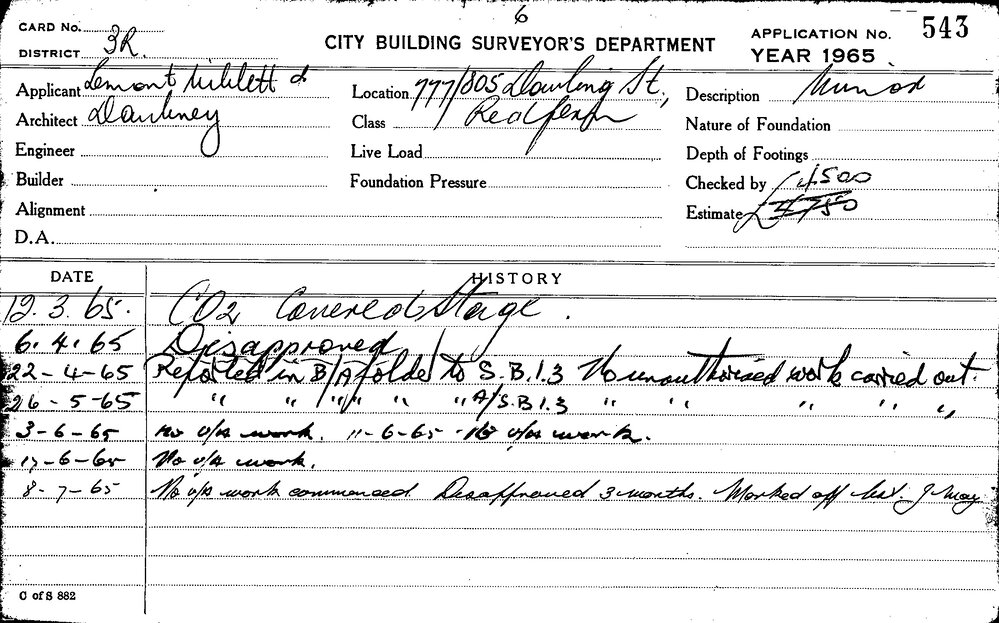 6
CARD No.
DISTRICT 3R.
CITY BUILDING SURVEYOR'S DEPARTMENT
APPLICATION No. 543
YEAR 1965
Applicant Lemont Millett &
Architect Dawbney
Engineer
Builder
Alignment
D.A.
Location 777/805 Dowling St.,
Class Redfern
Live Load
Foundation Pressure
Description Minor
Nature of Foundation
Depth of Footings
Checked by £4500
Estimate
DATE HISTORY
12.3.65. CO2 Covered Stage.
6.4.65 Disapproved
22-4-65 Reported in B/A folder to S.B.1.3 No unauthorised work carried out.
26-5-65 " " " " " A/S.B.1.3 " " " " "
3-6-65 No u/a work. 11-6-65 - No u/a work.
-6-65 No u/a work.
8-7-65 No u/a work commenced Disapproved 3 months. Marked off May
C of S 882